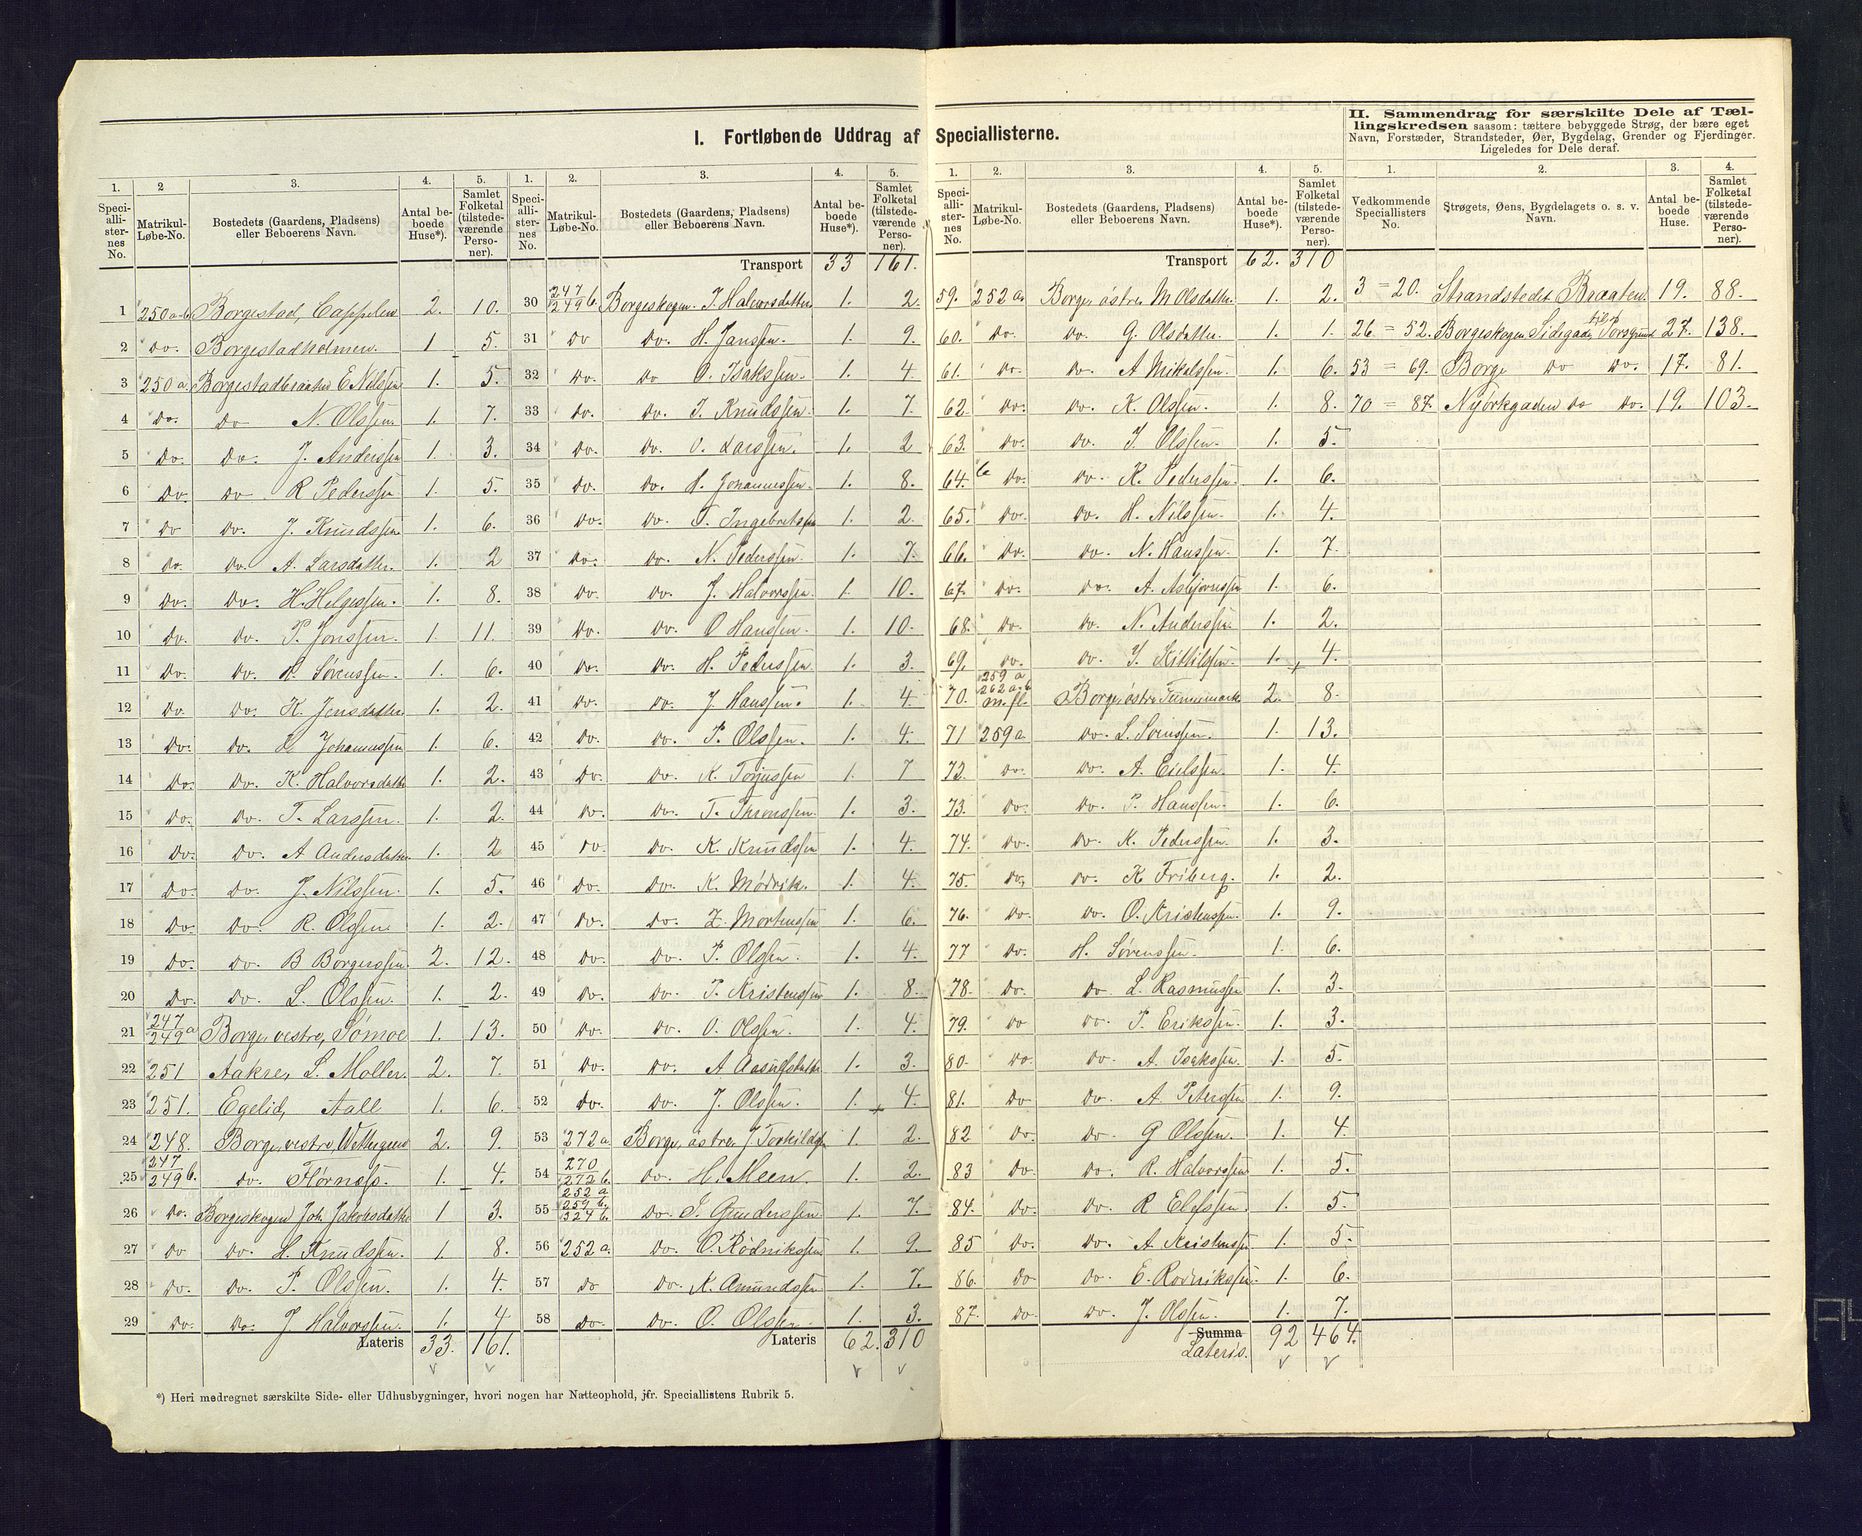 I. Fortløbende Uddrag af Speciallisterne.
II. Sammendrag for særskilte Dele af Tællingskredsen saasom: tættere bebyggede Strøg, der bære eget
Navn, Forstæder, Strandsteder, Øer, Bygdelag, Grender og Fjerdinger.
Ligeledes for Dele deraf.
1. 2 3. 4. 5.
Speciallisternes No. Matrikul-Løbe-No. Bostedets (Gaardens, Pladsens) eller Beboerens Navn. Antal beboede Huse*). Samlet Folketal (tilstedeværende Personer).
1 250 a-b Borgestad, Cappelen 2. 10.
2 Do. Borgestadholmen. 1 5.
3 250 a. Borgestadbraaten E. Nilsen 1. 5.
4 Do. Do N. Olssen. 1. 7.
5 Do. Do. J. Anderssen 1. 3.
6 Do. Do R. Pederssen 1. 5.
7 Do Do. J. Knudssen 1. 6.
8 Do. Do. A. Larsdatter. 1. 2
9 Do. Do. H. Helgessen. 1. 8.
10 Do. Do. P. Jonssen. 1. 11.
11 Do. Do. H. Sørenssen. 1. 6.
12 Do. Do. K. Jensdatter 1. 2.
13 Do. Do. Johannessen 1. 6.
14 Do. Do. K. Halvorsdatter 1. 2.
15 Do. Do. T. Larssen. 1. 2.
16 Do. Do. A Andersdatter 1. 2
17 Do. Do. J. Nilssen. 1. 5.
18 Do. Do. R. Olssen. 1. 2.
19 Do. Do. B Borgerssen. 2. 12.
20 Do. Do. L. Olssen. 1. 2.
21 247/249 a Borge, vestre, Sømoe 1. 13.
22 251 Aakre, L. Møller. 2. 7.
23 251. Egelid, Aall 1. 6.
24 248. Borge, vestre, Wettergreen 2. 9.
25 247/249 b. Do. Hørnæss. 1. 4.
26 Do. Borgeskogen Joh. Jakobsdatter 1 3.
27 Do Do. H. Knudssen. 1 8.
28 Do. Do. P. Olssen. 1. 4.
29 Do. Do. J Halvorssen. 1. 4
Lateris 33. 161.
1. 2. 3. 4. 5.
Speciallisternes No. Matrikul-Løbe-No. Bostedets (Gaardens, Pladsens) eller Beboerens Navn. Antal beboede Huse*). Samlet Folketal (tilstedeværende Personer).
Transport 33 161.
30 247/249 b. Borgeskogen. J. Halvorsdatter 1. 2.
31 Do Do. H. Janssen. 1. 9.
32 Do. Do O. Isakssen. 1. 4.
33 Do. Do. J. Knudssen. 1. 7.
34 Do. Do. O. Larssen. 1. 2
35 Do. Do. Johannessen. 1. 8.
36 Do. Do. T. Ingebretsen 1. 2.
37 Do. Do. N. Pederssen. 1. 7.
38 Do. Do. J. Halvorssen. 1. 10.
39 Do. Do. O Hanssen. 1. 10.
40 Do. Do. H. Pederssen. 1. 3.
41 Do. Do. J. Hanssen. 1. 4.
42 Do. Do. P. Olssen. 1. 4.
43 Do. Do. K. Torjussen 1. 7
44 Do. Do. T. Thronssen 1. 3.
45 Do. Do. K. Knudssen 1. 4.
46 Do. Do. K. Mødrik. 1. 4.
47 Do. Do. Z. Mortenssen 1. 6.
48 Do. Do. P. Olssen. 1. 4.
49 Do. Do. P. Kristenssen 1. 8.
50 Do. Do. O. Olssen. 1. 4.
51 Do. Do. A Aasulsdatter 1. 3.
52 Do. Do. J. Olssen. 1. 4.
53 272 a. Borge, østre, J Torkildsen 1. 2.
54 270/272 b. Do. H. Meen. 1. 2.
55 252 a 259 b. 324 b. Do. J. Gunderssen. 1. 7.
56 252 a. Do. O. Rødrikssen 1. 9.
57 Do Do. K. Amundssen 1. 7.
58 Do. Do. O. Olssen. 1. 3.
Lateris 62. 310
1. 2. 3. 4. 5.
Speciallisternes No. Matrikul-Løbe-No. Bostedets (Gaardens, Pladsens) eller Beboerens Navn. Antal beboede Huse*). Samlet Folketal (tilstedeværende Personer).
Transport 62. 310
59. 252 a. Borge, østre M. Olsdatter. 1. 2.
60. Do. Do. G. Olsdatter. 1. 1.
61. Do. Do. A Mikelssen. 1. 6.
62. Do. Do. K. Olssen. 1. 8.
63. Do. Do. J. Olssen. 1. 5.
64. b Do. Do. K. Pederssen. 1. 6.
65. Do. Do. H. Nilssen. 1. 4.
66. Do. Do. N. Hanssen. 1. 7.
67. Do. Do. A. Asbjørnssen 1. 6.
68. Do. Do. N. Anderssen. 1. 2.
69. Do. Do. J. Kittilssen. 1. 4.
70. 259 a 262 a-b m.fl. Borge, østre, Tennemark 2. 8.
71 259 a. Do. L. Sørenssen. 1. 13.
72. Do. Do. A. Eielssen. 1. 4.
73. Do. Do. P. Hanssen. 1. 6.
74. Do. Do. K. Pederssen. 1. 3.
75. Do. Do. K Friberg. 1. 2.
76. Do. Do. O. Kristenssen. 1. 9.
77 Do. H. Sørenssen. 1. 6.
78. Do. Do L. Rasmussen 1. 3.
79. Do Do. P. Erikssen. 1. 3.
80. Do Do. A. Isakssen. 1. 5
81. Do Do. A Peterssen 1. 9.
82 Do. Do. G Olssen. 1. 4
83 Do. Do. R. Halvorssen 1. 5
84. Do. Do. R 1. 5
85 Do. Do. A Kristenssen 1. 5.
86. Do Do. E. Rodrikssen. 1. 6.
87. Do Do. J. Olssen. 1. 7.
Summa
Lateris. 92 464.
1. 2. 3. 4.
Vedkommende Speciallisters No. Strøgets, Øens, Bygdelagets o. s. v. Navn. Antal beboede Huse. Samlet Folketal (tilstedeværende Personer).
3 = 20. Strandstedet Braaten 19. 88.
26 = 52. Borgeskogen Sidegade til Porsgrund 27. 138.
53 = 69. Borge Do Do. 17. 81.
70 = 87. Nyörkgaden Do Do. 19. 103.
*) Heri medregnet særskilte Side- eller Udhusbygninger, hvori nogen har Natteophold, jfr. Speciallistens Rubrik 5.